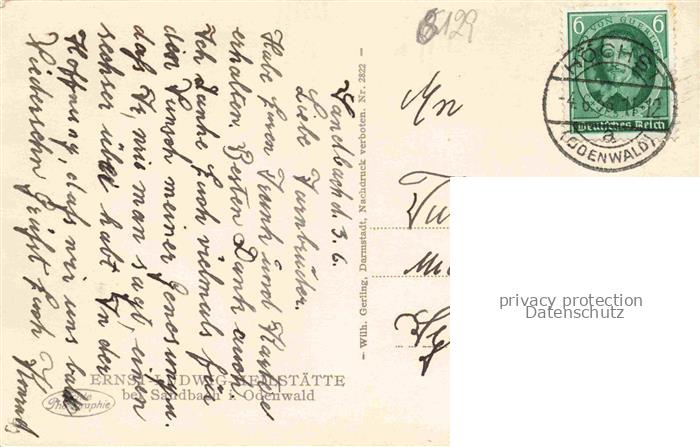 8129
6 6
OTTO VON GUERICKE
Deutsches Reich
HÖCHST
-4.6.36.
a
(ODENWALD)
Sandbach d. 3. 6.
Liebe Turnbrüder.
Habe Euren Brief und Karte
erhalten. Besten Dank auch
Ich danke Euch vielmals für
den Wunsch meiner Genesung.
daß Ihr, wie man sagt, einen
sechser über habt. In der
Hoffnung, daß wir uns bald
Wiedersehn Grüßt Euch
An
Wilh. Gerling, Darmstadt, Nachdruck verboten. Nr. 2822 —
ERNST-LUDWIG-HEILSTÄTTE
bei Sandbach i. Odenwald
Echte
Photographie
privacy protection
Datenschutz